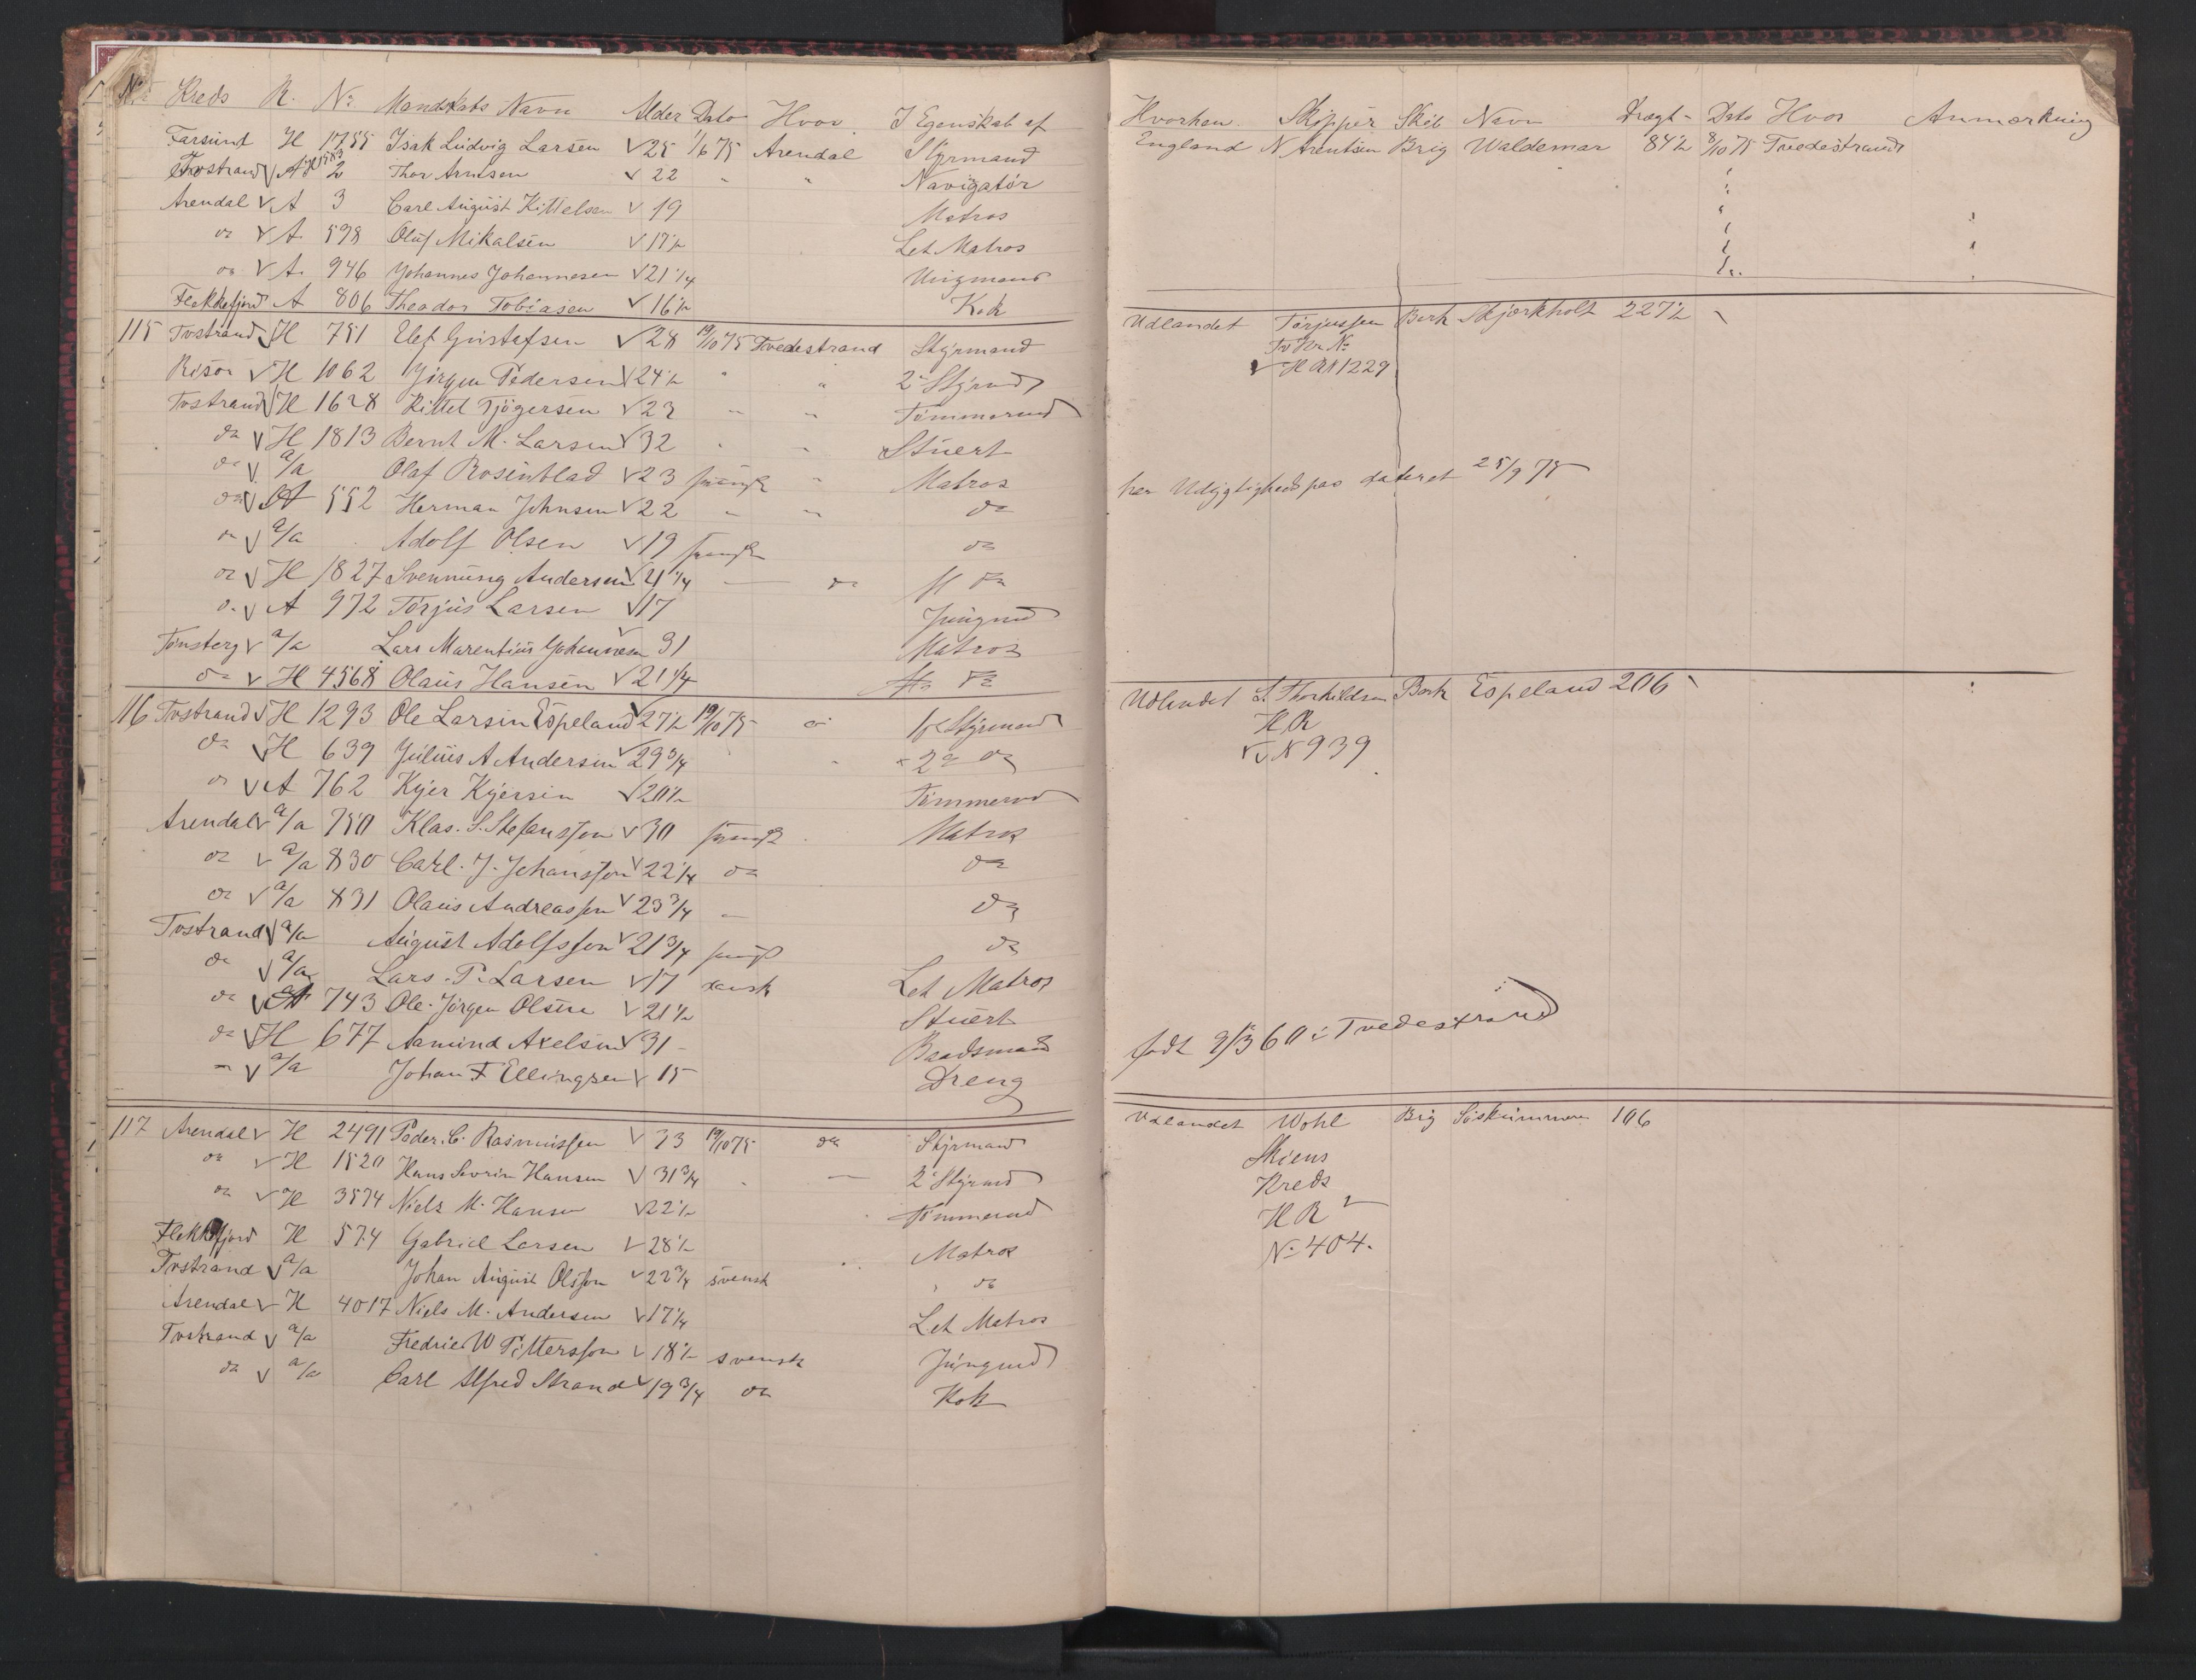 No Kreds R. No Mandskabs Navn Alder Dato Hvor I Egenskab af
Farsund H 1755 Isak Ludvig Larsen √ 25 1/6 75 Arendal Styrmand
Tvstrand √ A 2 Thor Arntsen √ 22 " " Navigatör
Arendal √ A 3 Carl August Kittelsen √ 19 Matros
do √ A. 598 Oluf Mikalsen √ 17½ Let Matros
do √ A. 946 Johannes Johannesen √ 21¼ Ungmand
Flekkefjord A 806 Theodor Tobiasen √ 16½ Kok
115 Tvstrand √ H 751 Elef Gustafsen √ 28 19/10 75 Tvedestrand Styrmand
Risör √ H 1062 Jörgen Pedersen √ 24½ " " 2 Styrmd
Tvstrand √ H 1628 Kittel Tjögersen √ 23 " " Tömmermd
do √ H 1813 Bernt M. Larsen √ 32 " Stuert
do √ a/a Olaf Rosenblad √ 23 svensk " Matros
do √ A 552 Herman Johnsen √ 22 " " do
do √ a/a Adolf Olsen √ 19 svensk do
do √ H 1827 Svennung Andersen √ 21¼ — do M do
do √ A 972 Törjus Larsen √ 17 Jungmd
Tönsberg √ a/a Lars Marentius Johannesen √ 31 Matros
do √ H 4568 Olaus Hansen √ 21¼ do
116 Tvstrand √ H 1293 Ole Larsen Espeland √ 27½ 19/10 75 do Styrmand
do √ H 639 Julius A Andersen √ 29¾ " 2 do
do √ A 762 Kjer Kjersen √ 20½ Tömmermd
Arendal √ a/a 750 Klas. S. Stefansson √ 30 svensk Matros
do √ a/a 830 Carl. J. Johansson √ 22¼ do do
do √ a/a 831 Olaus Andreassen √ 23¾ — do
Tvstrand √ a/a August Adolfsson √ 21¾ svensk do
do √ a/a Lars. P. Larsen √ 17 dansk Let Matros
do √ A 743 Ole. Jörgen Olsen √ 21½ Stuert
do √ H 677 Aamund Axelsen √ 31 - Baadsmand
— √ a/a Johan F Ellingsen √ 15 Dreng
117 Arendal √ H 2491 Peder. C. Rasmussen √ 33 19/10 75 do Styrmand
do √ H 1520 Hans Severin Hansen √ 31¾ " — 2 Styrmd
do √ H 3574 Niels M. Hansen √ 22½ Tömmermd
Flekkefjord H 574 Gabriel Larsen √ 28½ Matros
Tvstrand √ a/a Johan August Olsson √ 22¾ svensk " do
Arendal √ H 4017 Niels M. Andersen √ 17¼ Let Matros
Tvstrand √ a/a Fredric W Pettersson √ 18½ svensk Jungmd
do √ a/a Carl Alfred Strand √ 19¾ do Kok
Hvorhen Skipper Skib Navn Drægt. Dato Hvor Anmærkning
England N Arentsen Brig Waldemar 84½ 8/10 75 Tvedestrand
Udlandet Törjussen Bark Skjerkholt 227½
Tv Kr No
√ H A 1229
har Udygtighedspas dateret 25/9 75
Udlandet S. Thorkildsen Bark Espeland 206
H R
√ N 939
født 9/3 60 i Tvedestrand
Udlandet Wohl Brig Söskummeren 106
Skiens
Kreds
H R
No 404.